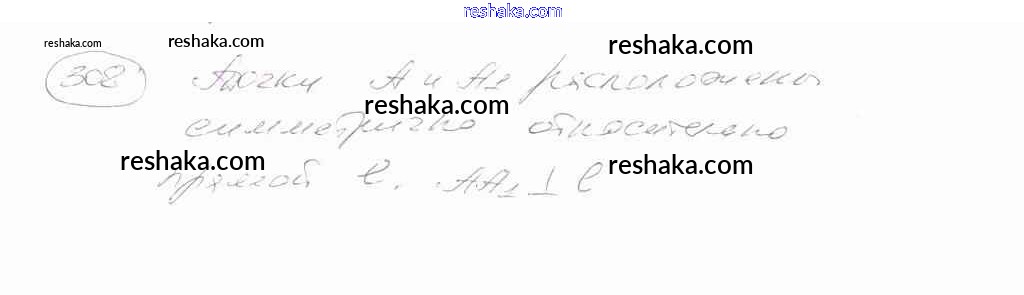 reshaka.com
reshaka.com reshaka.com reshaka.com
308 Точки А и А1 расположены
reshaka.com
симметрично относительно
reshaka.com reshaka.com
прямой l. АА1 ⊥ l